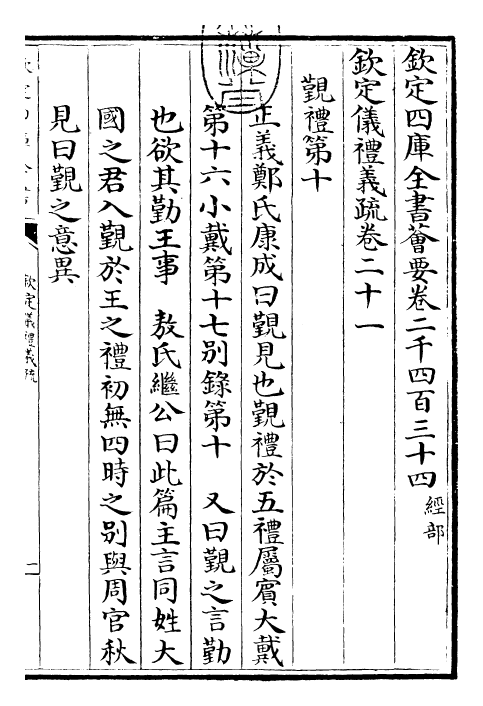 欽定四庫全書薈要卷二千四百三十四 經部
欽定儀禮義疏卷二十一
覲禮第十
正義鄭氏康成曰覲見也覲禮於五禮屬賓大戴
第十六小戴第十七別錄第十 又曰覲之言勤
也欲其勤王事 敖氏繼公曰此篇主言同姓大
國之君入覲於王之禮初無四時之別與周官秋
見曰覲之意異
欽定儀禮義疏